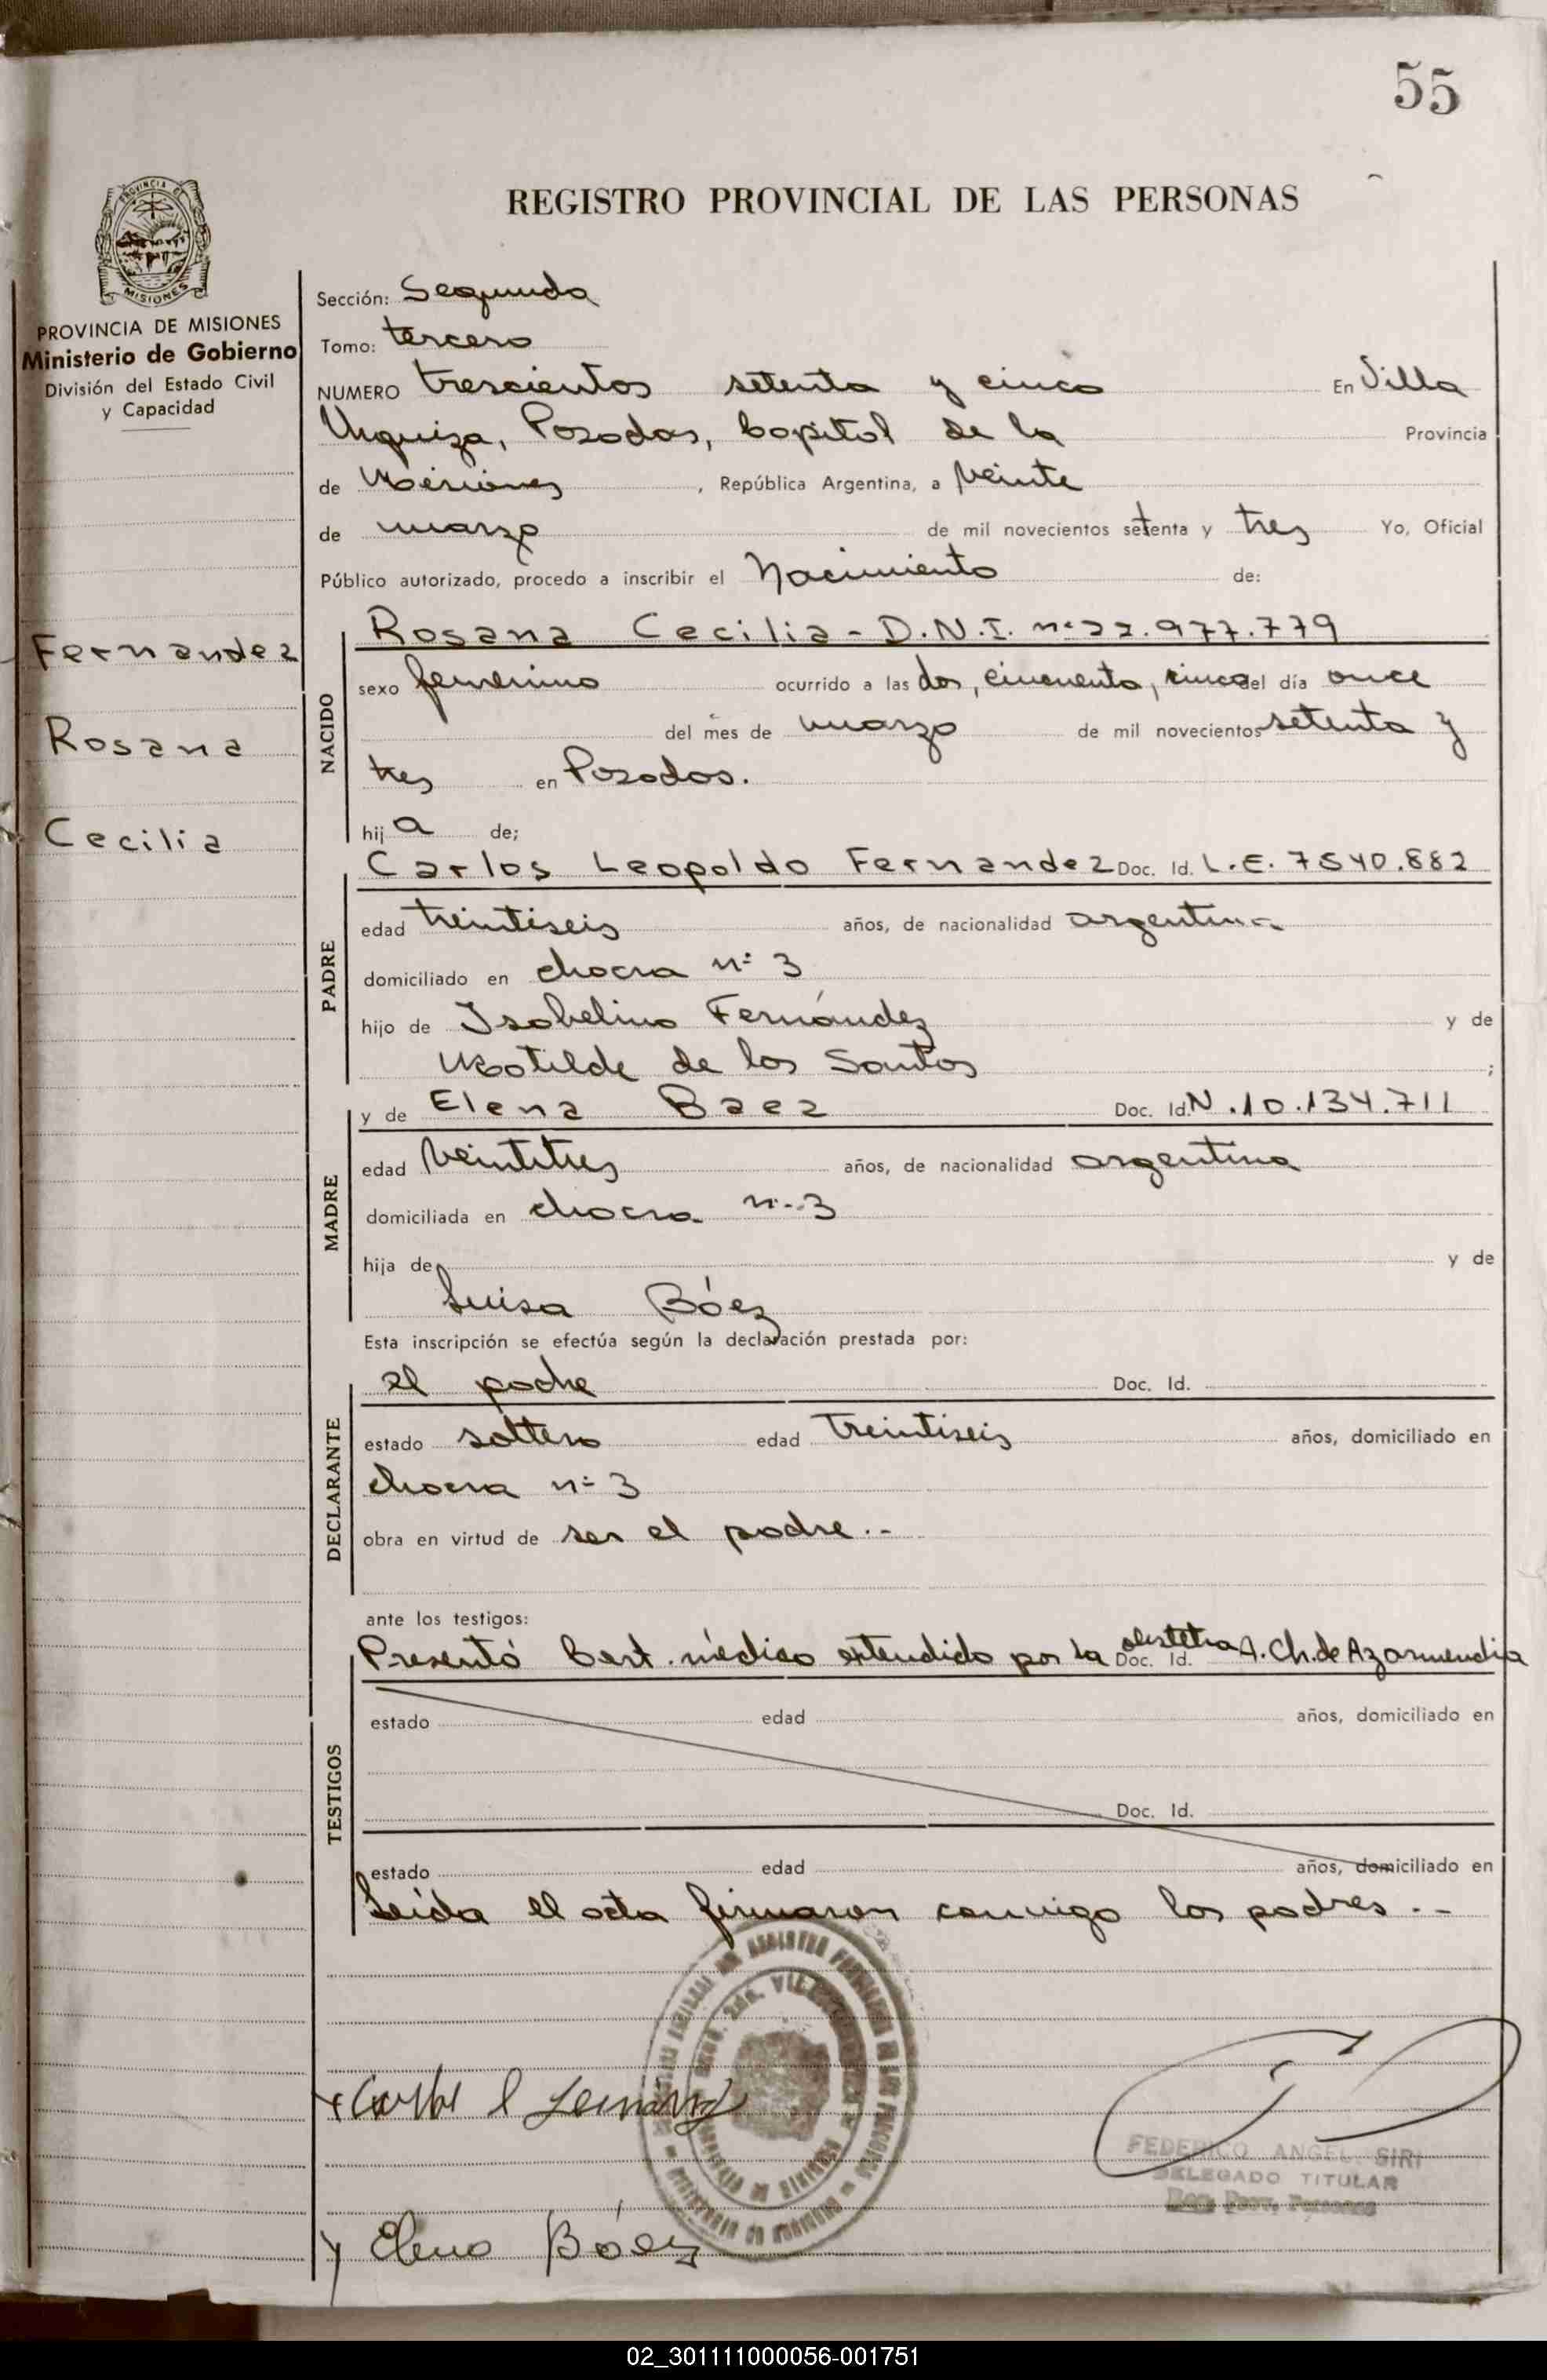 55
REGISTRO PROVINCIAL DE LAS PERSONAS
PROVINCIA DE
MISIONES
PROVINCIA DE MISIONES
Ministerio de Gobierno
División del Estado Civil
y Capacidad
Fernandez
Rosana
Cecilia
Sección: Segunda
Tomo: tercero
NUMERO trescientos setenta y cinco En Villa
Urquiza, Posadas, Capital de la Provincia
de Misiones, República Argentina, a veinte
de marzo de mil novecientos setenta y tres Yo, Oficial
Público autorizado, procedo a inscribir el Nacimiento de:
NACIDO
Rosana Cecilia - D.N.I. nº 22.977.779
sexo femenino ocurrido a las dos, cincuenta, cinco del día once
del mes de marzo de mil novecientos setenta y
tres en Posadas.
hija de;
PADRE
Carlos Leopoldo Fernandez Doc. Id. L.E. 7540.882
edad treintiseis años, de nacionalidad argentina
domiciliado en chacra nº 3
hijo de Isabelino Fernández y de
Matilde de los Santos ;
MADRE
y de Elena Baez Doc. Id. N. 10.134.711
edad veintitres años, de nacionalidad argentina
domiciliada en chacra nº 3
hija de y de
Luisa Báez
Esta inscripción se efectúa según la declaración prestada por:
DECLARANTE
el padre Doc. Id.
estado soltero edad treintiseis años, domiciliado en
chacra nº 3
obra en virtud de ser el padre.-
ante los testigos:
TESTIGOS
Presentó Cert. médico extendido por la obstetra A. Ch. de Azarmendia
Doc. Id.
estado edad años, domiciliado en
Doc. Id.
estado edad años, domiciliado en
Leída el acta firmaron conmigo los padres.-
Carlos L Fernández
FEDERICO ANGEL SIRI
DELEGADO TITULAR
Reg. Prov. Personas
Elena Báez
02_301111000056-001751